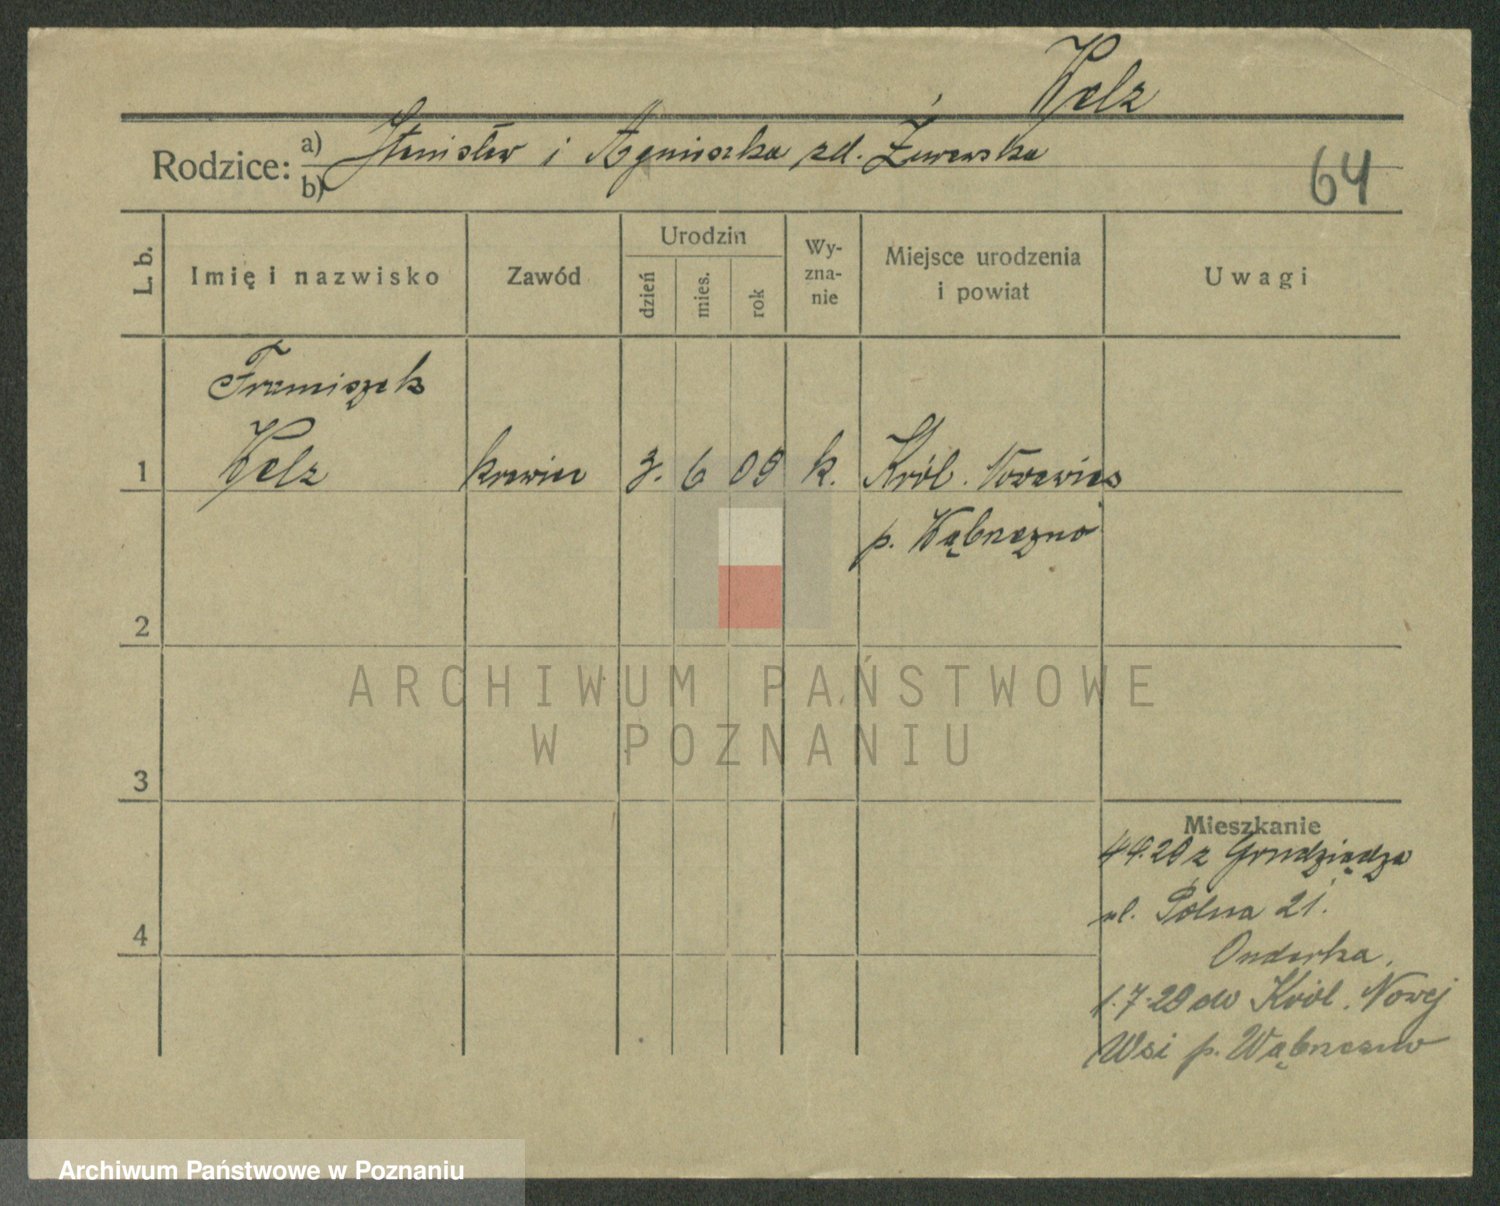 Welz
Rodzice: a) Stanisław i Agnieszka zd. Żurawska
b)
64
L. b.
Imię i nazwisko
Zawód
Urodzin
dzień
mies.
rok
Wy-
zna-
nie
Miejsce urodzenia
i powiat
Uwagi
Franciszek
1 Welz krawiec 3. 6 09 k. Król. Nowawieś
p. Wąbrzeźno
2
3
4
Mieszkanie
4.4.29 z Grudziądza
ul. Polna 21.
Onderka.
1.7.29 do Król. Nowej
Wsi p. Wąbrzeźno
ARCHIWUM PAŃSTWOWE
W POZNANIU
Archiwum Państwowe w Poznaniu